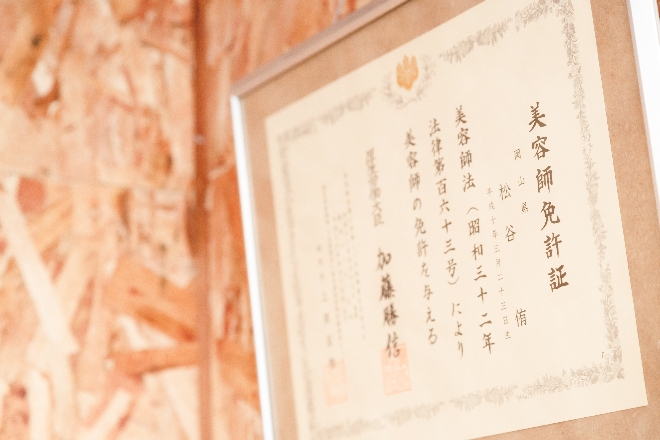 美容師免許証
岡山県
松谷 侑
平成十年三月二十三日生
美容師法（昭和三十二年
法律第百六十三号）により
美容師の免許を与える
厚生労働大臣 加藤勝信